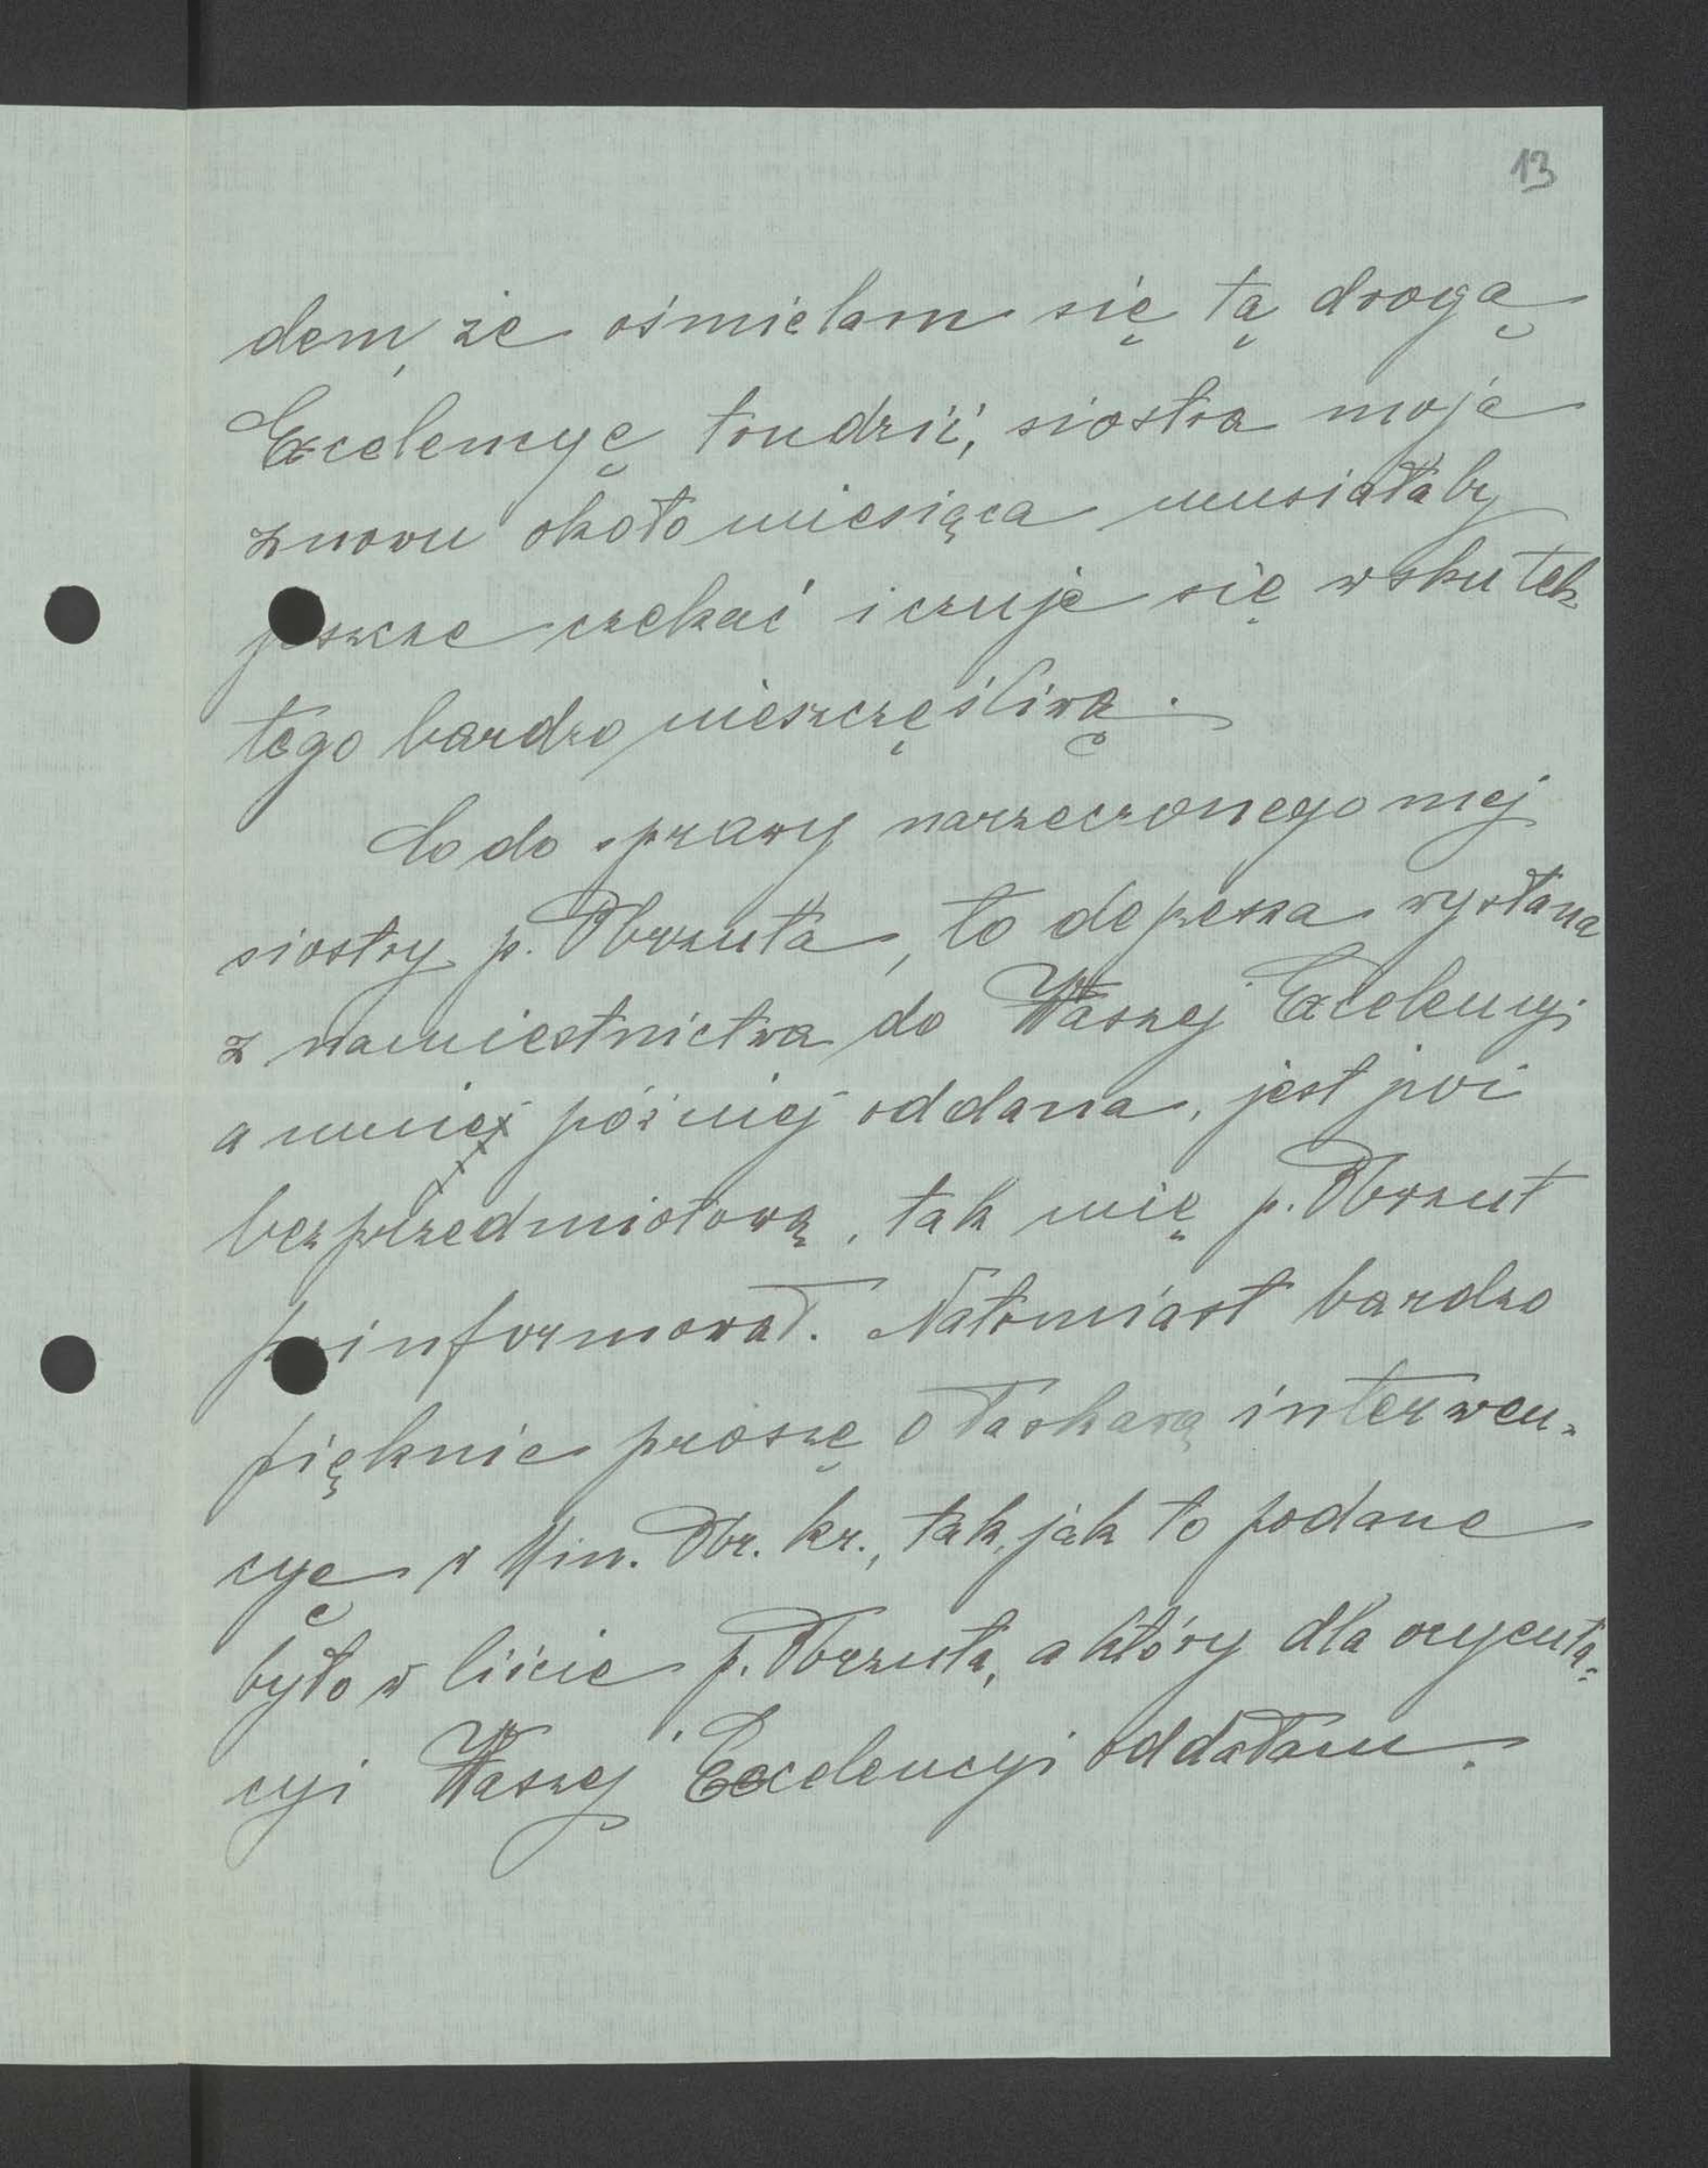 13
dem, że ośmielam się tą drogą
Excelencyę trudzić, siostra moja
znowu około miesiąca musiałaby
jeszcze czekać i czuje się wskutek
tego bardzo nieszczęśliwą.
Co do sprawy narzeczonego mej
siostry p. Obrzuta, to depesza wysłana
z namiestnictwa do Waszej Excelencyi
a mnie później oddana, jest już
bezprzedmiotową, tak mię p. Obrzut
poinformował. Natomiast bardzo
pięknie proszę o łaskawą interwen-
cyę w Min. Obr. kr., tak, jak to podane
było w liście p. Obrzuta, a który dla oryenta-
cyi Waszej Excelencyi oddałam.